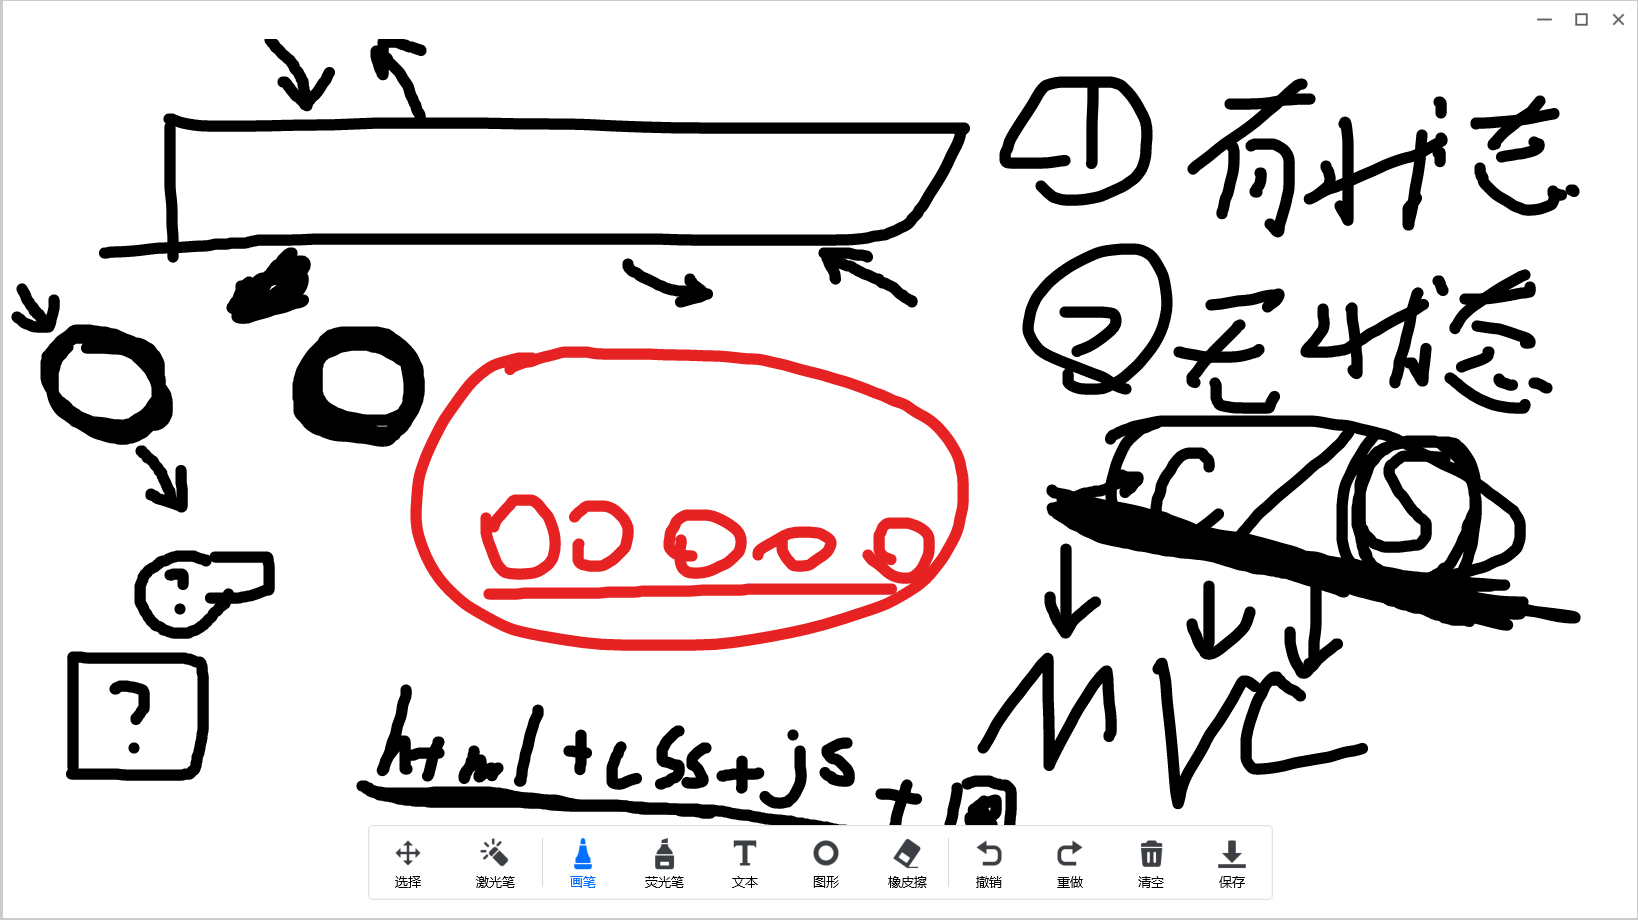 ① 有状态
② 无状态
C/S
?
MVC
?
html+css+js+图
选择 激光笔 画笔 荧光笔 文本 图形 橡皮擦 撤销 重做 清空 保存